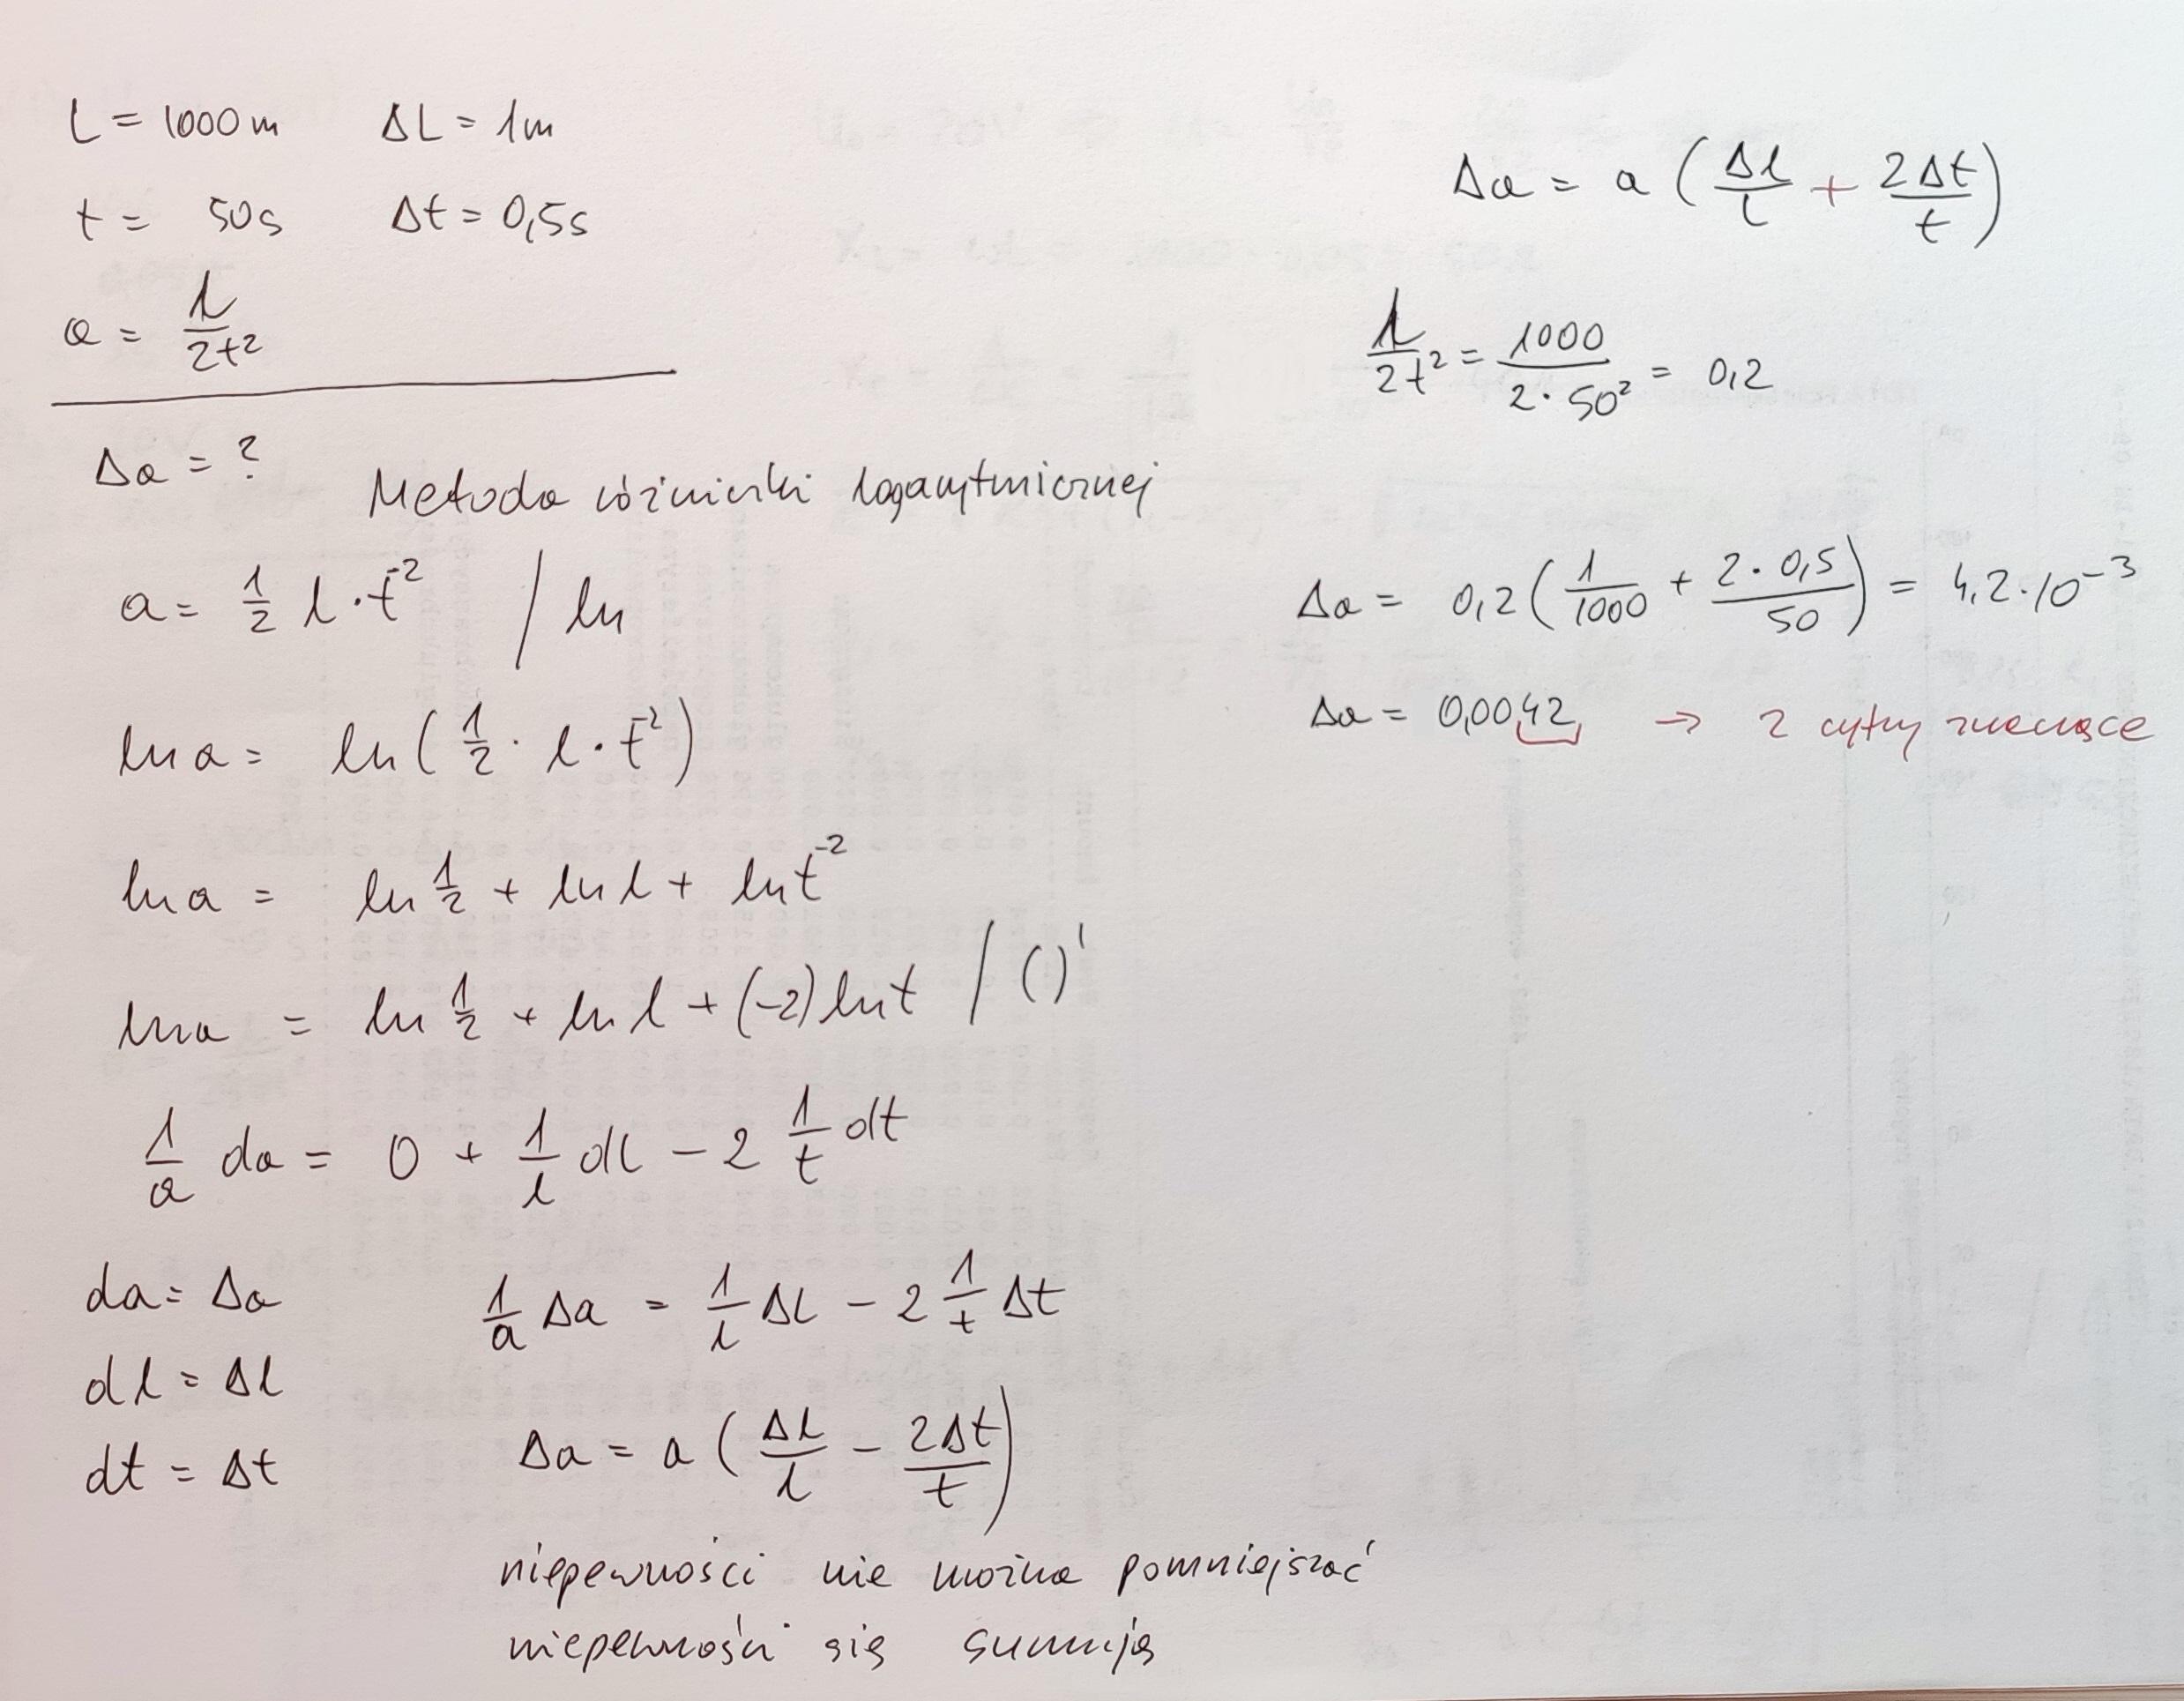 L = 1000 m ΔL = 1m
t = 50s Δt = 0,5s
a = l/2t²
Δa = ?
Metoda różniczki logarytmicznej
a = 1/2 l · t⁻² / ln
ln a = ln(1/2 · l · t⁻²)
ln a = ln 1/2 + ln l + ln t⁻²
ln a = ln 1/2 + ln l + (-2) ln t / ()'
1/a da = 0 + 1/l dl - 2 1/t dt
da = Δa
dl = Δl
dt = Δt
1/a Δa = 1/l Δl - 2 1/t Δt
Δa = a (Δl/l - 2Δt/t)
niepewności nie można pomniejszać
niepewności się sumują
Δa = a (Δl/l + 2Δt/t)
l/2t² = 1000/2·50² = 0,2
Δa = 0,2 (1/1000 + 2·0,5/50) = 4,2·10⁻³
Δa = 0,0042 → 2 cyfry znaczące